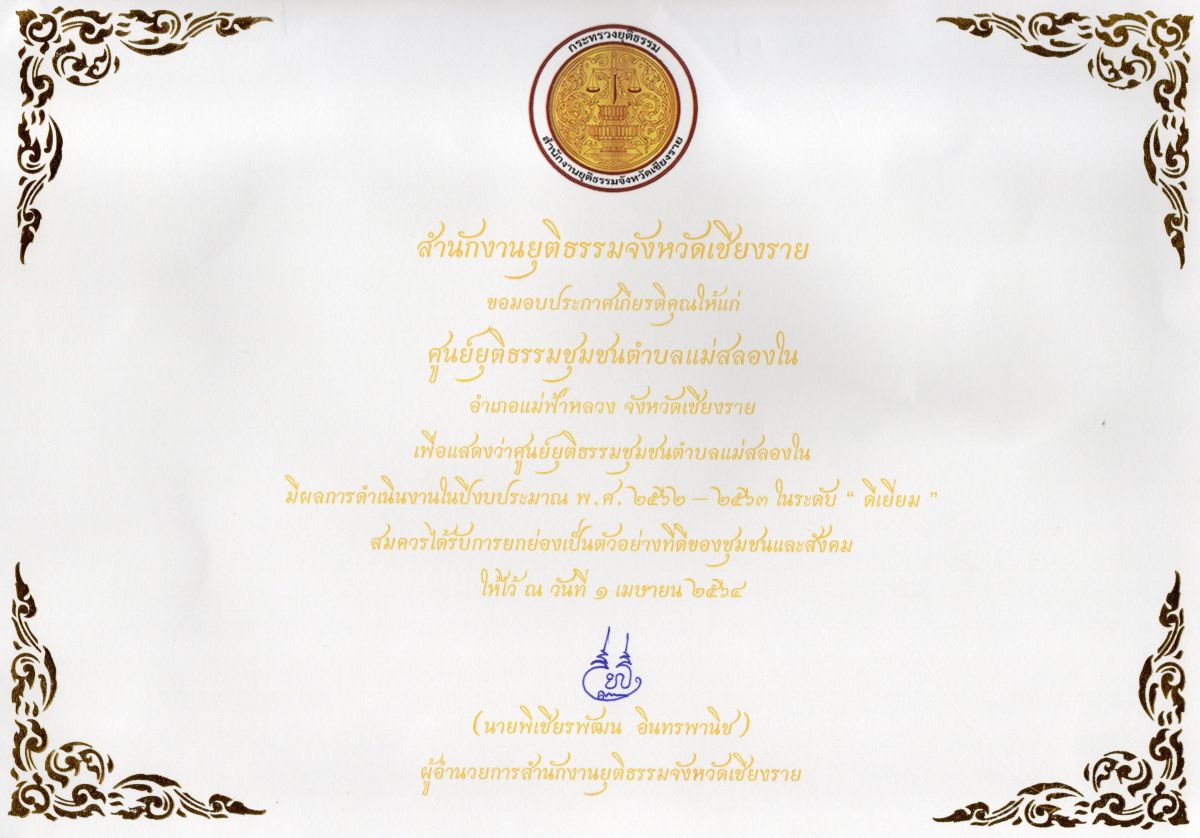 กระทรวงยุติธรรม
สำนักงานยุติธรรมจังหวัดเชียงราย
สำนักงานยุติธรรมจังหวัดเชียงราย
ขอมอบประกาศเกียรติคุณให้แก่
ศูนย์ยุติธรรมชุมชนตำบลแม่สลองใน
อำเภอแม่ฟ้าหลวง จังหวัดเชียงราย
เพื่อแสดงว่าศูนย์ยุติธรรมชุมชนตำบลแม่สลองใน
มีผลการดำเนินงานในปีงบประมาณ พ.ศ. ๒๕๖๒ – ๒๕๖๓ ในระดับ “ ดีเยี่ยม ”
สมควรได้รับการยกย่องเป็นตัวอย่างที่ดีของชุมชนและสังคม
ให้ไว้ ณ วันที่ ๑ เมษายน ๒๕๖๔
(นายพิเชียรพัฒน อินทรพานิช)
ผู้อำนวยการสำนักงานยุติธรรมจังหวัดเชียงราย